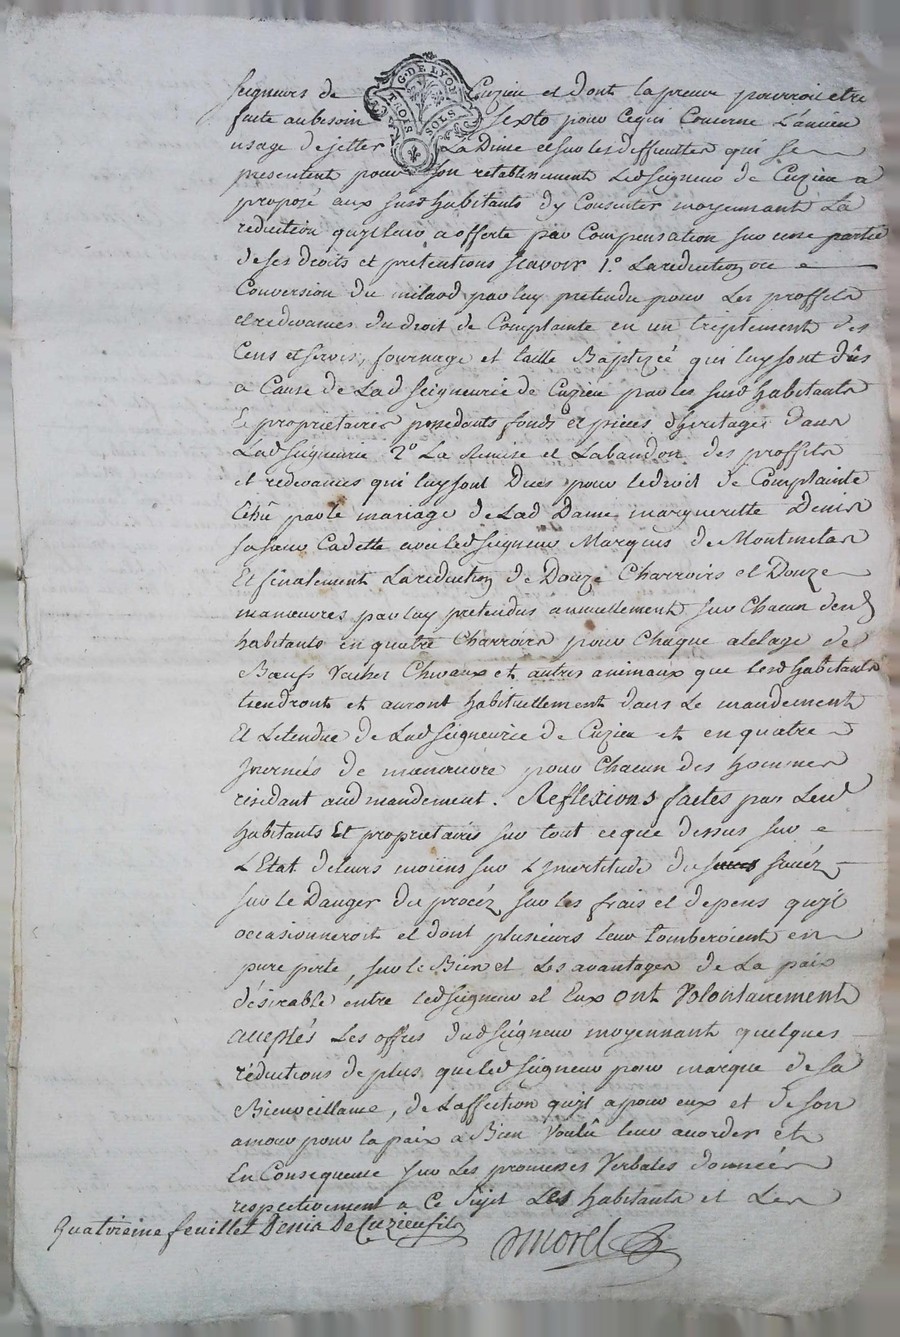 G. DE LYON
TROIS SOLS
seigneurs de Cuzieu et dont la preuve pourroit etre
faite au besoin Sexto pour ce qui Concerne L'ancien
usage de jetter La Dime et sur les difficultes qui se
presentent pour son retablissement Led seigneur de Cuzieu a
proposé aux susd habitants d'y Consentir moyennant La
réduction qu'il leur a offerte par Compensation sur une partie
de ses droits et pretentions scavoir 1.° La reduction ou
Conversion du milaod par luy pretendu pour Les proffits
et redevances du droit de Complainte en un treptement des
Cens et servis, fournage et taille Baptizée qui luy sont dûs
a Cause de Lad seigneurie de Cuzieu par les susd habitants
& proprietaires possedants fonds et pieces d'heritages dans
Lad seigneurie 2° La Remise et Labandon des proffits
et redevances qui luy sont Dues pour le droit de Complainte
Echû par le mariage de Lad Dame margueritte Denis
sa soeur Cadette avec led seigneur Marquis de Montmelas
Et finalement La reduction de Douze Charroirs et Douze
manoeuvres par luy pretendus annuellement sur Chacun desd
habitants en quatre Charroirs pour Chaque atelage de
Boeufs Vaches Chevaux et autres animaux que lesd habitants
tiendront et auront habituellement dans Le mandement
Et Letendue de Lad seigneurie de Cuzieu et en quatre
Journées de manoeuvre pour Chacun des hommes
residant aud mandement. Reflexions faites par Lesd
habitants Et proprietaires sur tout ce que dessus sur
L'Etat de leurs moiens sur L'incertitude du succéz
sur le Danger du procéz sur les frais et depens qu'il
occasionneroit et dont plusieurs leur tomberoient en
pure perte, sur le Bien et Les avantages de La paix
désirable entre led seigneur et Eux ont Volontairement
acceptés Les offres dud seigneur moyennant quelques
réductions de plus que led seigneur pour marque de sa
Bienveillance, de Laffection qu'il a pour eux et de son
amour pour la paix a Bien Voulû leur accorder et
En Consequence sur Les promesses Verbales données
respectivement a Ce Sujet Les habitants et Les
Quatrieme feuillet Denis De Cuzieu fils
Morel